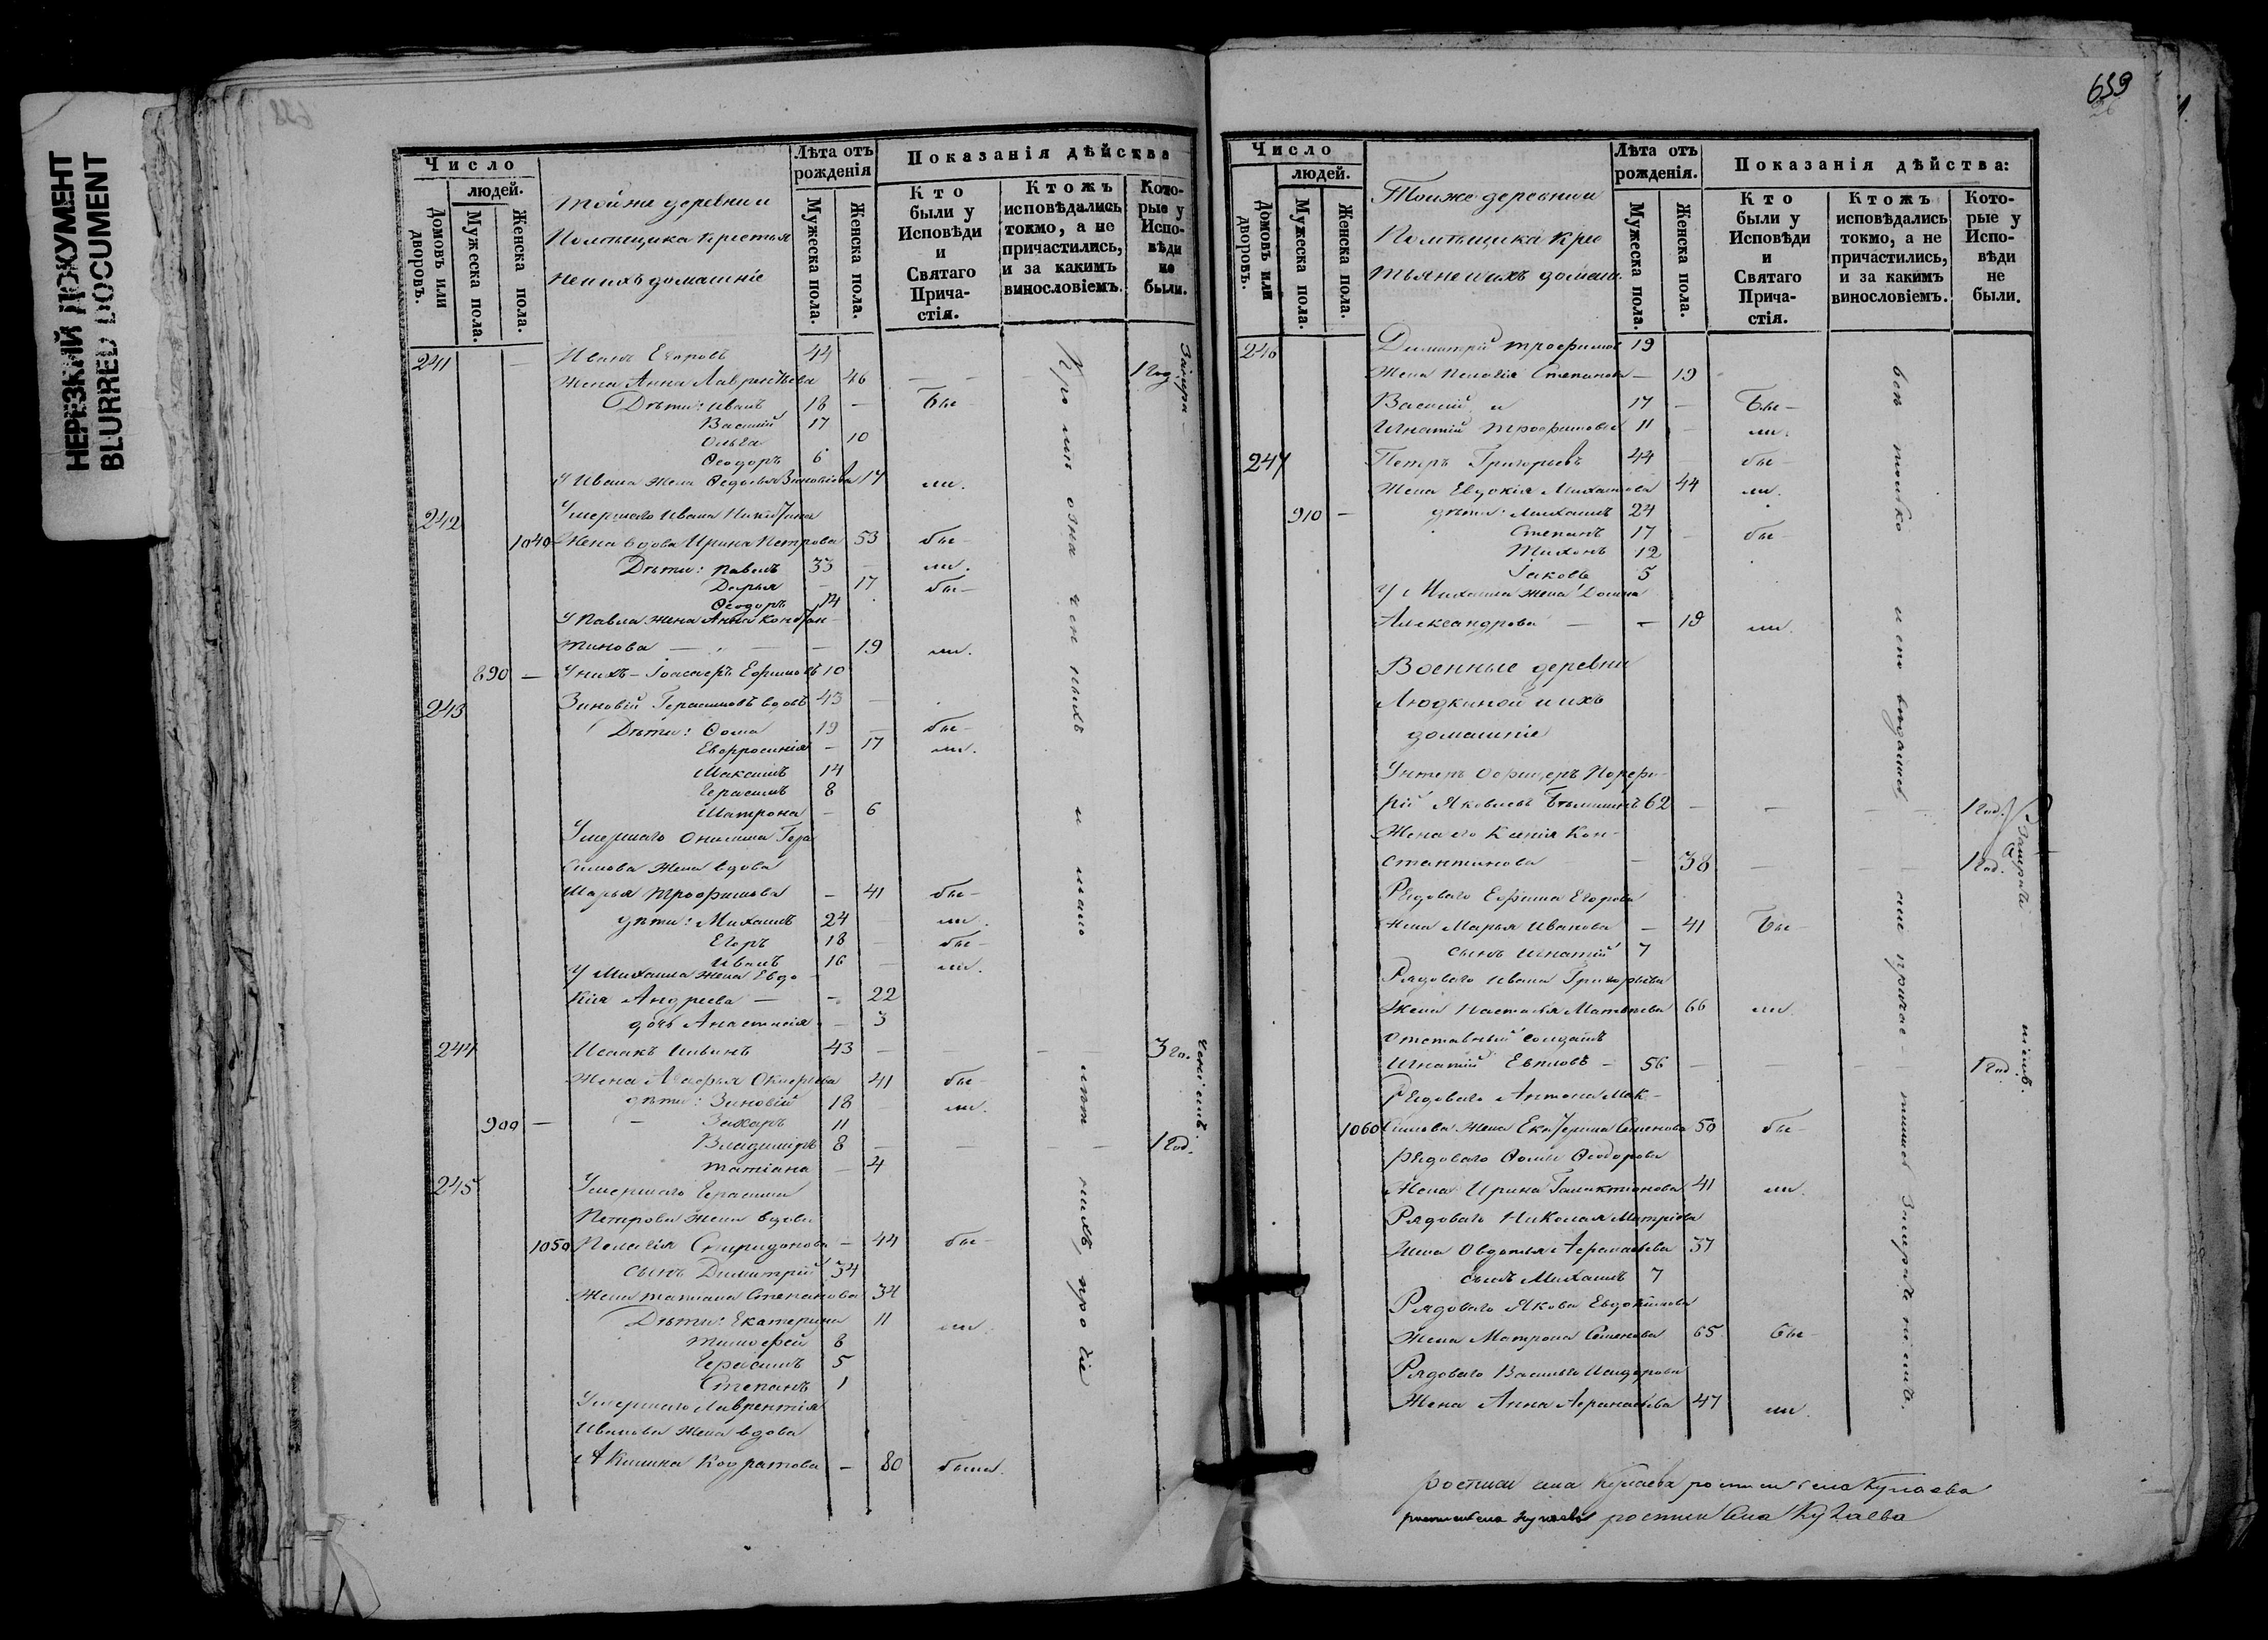 НЕРЕЗКИЙ ДОКУМЕНТ
BLURRED DOCUMENT
Число
людей.
Домовъ или дворовъ.
Мужеска пола.
Женска пола.
Тойже деревни
Помѣщика крестья
не и ихъ домашніе
Лѣта отъ рожденія
Мужеска пола.
Женска пола.
Показанія дѣйства
Кто были у Исповѣди и Святаго Причастія.
Ктожъ исповѣдались токмо, а не причастились, и за какимъ винословіемъ.
Которые у Исповѣди не были.
241 — Иванъ Егоровъ 44
Жена Анна Лаврентьева 46 — — 1 год
Дѣти: Иванъ 18 — бы-
Василій 17
Ольга 10
Ѳеодоръ 6
У Ивана жена Ѳедосья Зиновьева 17 ли.
242 Умершаго Ивана Никитина
1040 Жена вдова Ирина Петрова 53 бы-
Дѣти: Павелъ 33 — ли.
Дарья — 17 бы-
Ѳеодоръ 14
У Павла жена Анна Констан-
тинова — — — 19 ли.
890 — У нихъ — Ефимовъ 10
243 Зиновій Герасимовъ вдовъ 43 —
Дѣти: Ѳома 19 — бы-
Евфросинія — 17 ли.
Максимъ 14
Герасимъ 8
Матрона — 6
Умершаго Онисима Гера
симова жена вдова
Марья Трофимова — 41 бы-
дѣти: Михаилъ 24 ли.
Егоръ 18 — бы-
Иванъ 16 — ли.
У Михаила жена Евдо-
кія Андреева — — 22
дочь Анастасія — 3
244 Исаакъ 43 — — — 3 го.
Жена 41 бы-
дѣти: Зиновій 18 — ли.
900 — Захаръ 11
Владиміръ 8 — — — 1 год.
Татіана — 4
245 Умершаго Герасима
Петрова жена вдова
1050 Пелагія Спиридонова — 44 бы-
сынъ Димитрій 34
Жена Татіана Степанова 34
Дѣти: Екатерина 11 ли
Тимофей 8
Герасимъ 5
Степанъ 1
Умершаго Лаврентія
Иванова жена вдова
Акилина Кодратова — 80 была.
659
Число
людей.
Домовъ или дворовъ.
Мужеска пола.
Женска пола.
Тойже деревни
Помѣщика крес
тьяне и ихъ домаш.
Лѣта отъ рожденія.
Мужеска пола.
Женска пола.
Показанія дѣйства:
Кто были у Исповѣди и Святаго Причастія.
Ктожъ исповѣдались токмо, а не причастились, и за какимъ винословіемъ.
Которые у Исповѣди не были.
246 Димитрій Трофимов 19
Жена Пелагія Степанова — 19
Василій и 17 — бы-
Игнатій Трофимовы 11 — ли.
247 Петръ Григорьевъ 44 бы-
Жена Евдокія Михайлова 44 ли.
910 — дѣти: Михаилъ 24
Степанъ 17 — бы-
Тихонъ 12
Іаковъ 5
У Михаила жена Домна
Александрова — — 19 ли.
Военные деревни
Людкиной и ихъ
домашніе
Унтеръ офицеръ Порфи-
рій Яковлевъ 62 — — — 1 год.
Жена его Ксенія Кон-
стантинова — 38 — — 1 год.
Рядоваго Ефима Егорова
Жена Марья Иванова — 41 бы-
сынъ Игнатій 7
Рядоваго Ивана Григорьева
Жена Настасья Матвѣева 66 ли.
Отставный солдатъ
Игнатій — 56 — — — 1 год.
Рядоваго Антона Мак-
1060 симова жена Екатерина Семенова 50 бы-
Рядоваго Ѳомы Ѳеодорова
Жена Ирина Галактионова 41 ли.
Рядоваго Николая
Жена Овдотья Афанасьева 37
сынъ Михаилъ 7
Рядоваго Якова Евдокимова
Жена Матрона Семенова 65 бы-
Рядоваго Василья
Жена Анна Афанасьева 47 ли.